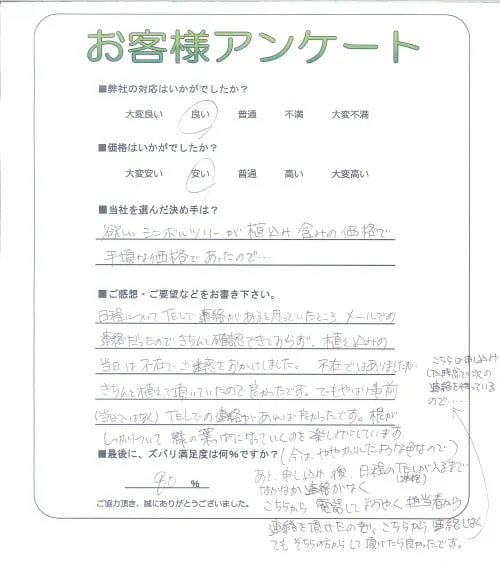 お客様アンケート
■弊社の対応はいかがでしたか？
大変良い 良い 普通 不満 大変不満
■価格はいかがでしたか？
大変安い 安い 普通 高い 大変高い
■当社を選んだ決め手は？
欲しいシンボルツリーが植込み含みの価格で
手頃な価格であったので…
■ご感想・ご要望などをお書き下さい。
日程についてTELで連絡があると思っていたところメールでの
連絡だったのできちんと確認できておらず、植え込みの
当日は不在でご迷惑をおかけしました。不在ではありましたが
きちんと植えて頂いていたので良かったです。でもやはり事前
(当日ではなく)TELでの連絡があれば良かったです。根が
しっかりついて緑の葉っぱになっていくのを楽しみにしています。
(今は、やや かれたような色なので)
■最後に、ズバリ満足度は何％ですか？
80 %
ご協力頂き、誠にありがとうございました。
あと、申し込み後、日程のTELが入るまで
なかなか連絡がなく
こちらから電話してようやく担当者から
連絡を頂けたのも、こちらから連絡しなく
てもそちらの方からして頂けたら良かったです。
こちらは申し込み
した時点で次の
連絡を待っている
ので…